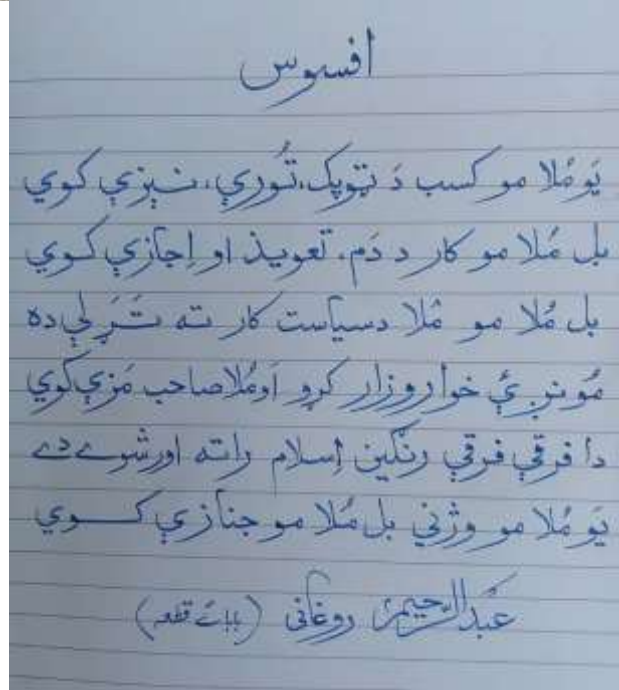 افسوس
یَو مُلا مو کسب دَ ټوپک، تُورې، نېزې کوي
بل مُلا مو کار د دَم، تعویذ او اِجازې کوي
بل مُلا مو مُلا دسیاست کار ته تَړلې ده
مُونږ ئې خوار وزار کړو اَو مُلا صاحب مَزې کوي
دا فرقې فرقې رنګین اِسلام راته اور شوے دے
یَو مُلا مو وژني بل مُلا مو جنازې کوي
عَبدالرَّحیم روغانی (بابائے قطعہ)